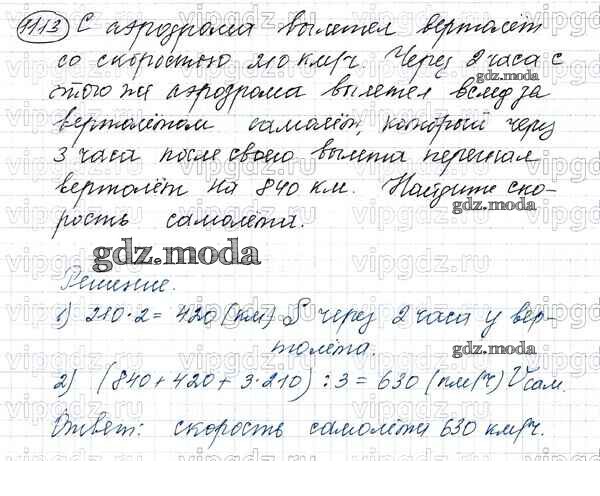 1113 С аэродрома вылетел вертолёт
со скоростью 210 км/ч. Через 2 часа с
gdz.moda
этого же аэродрома вылетел вслед за
вертолётом самолёт, который через
3 часа после своего вылета перегнал
вертолёт на 840 км. Найдите ско-
gdz.moda
рость самолета.
gdz.moda
Решение.
1) 210·2 = 420 (км) S через 2 часа у вер-
толёта.
gdz.moda
2) (840 + 420 + 3·210) : 3 = 630 (км/ч) V сам.
Ответ: скорость самолёта 630 км/ч.
gdz.moda
vipgdz.ru